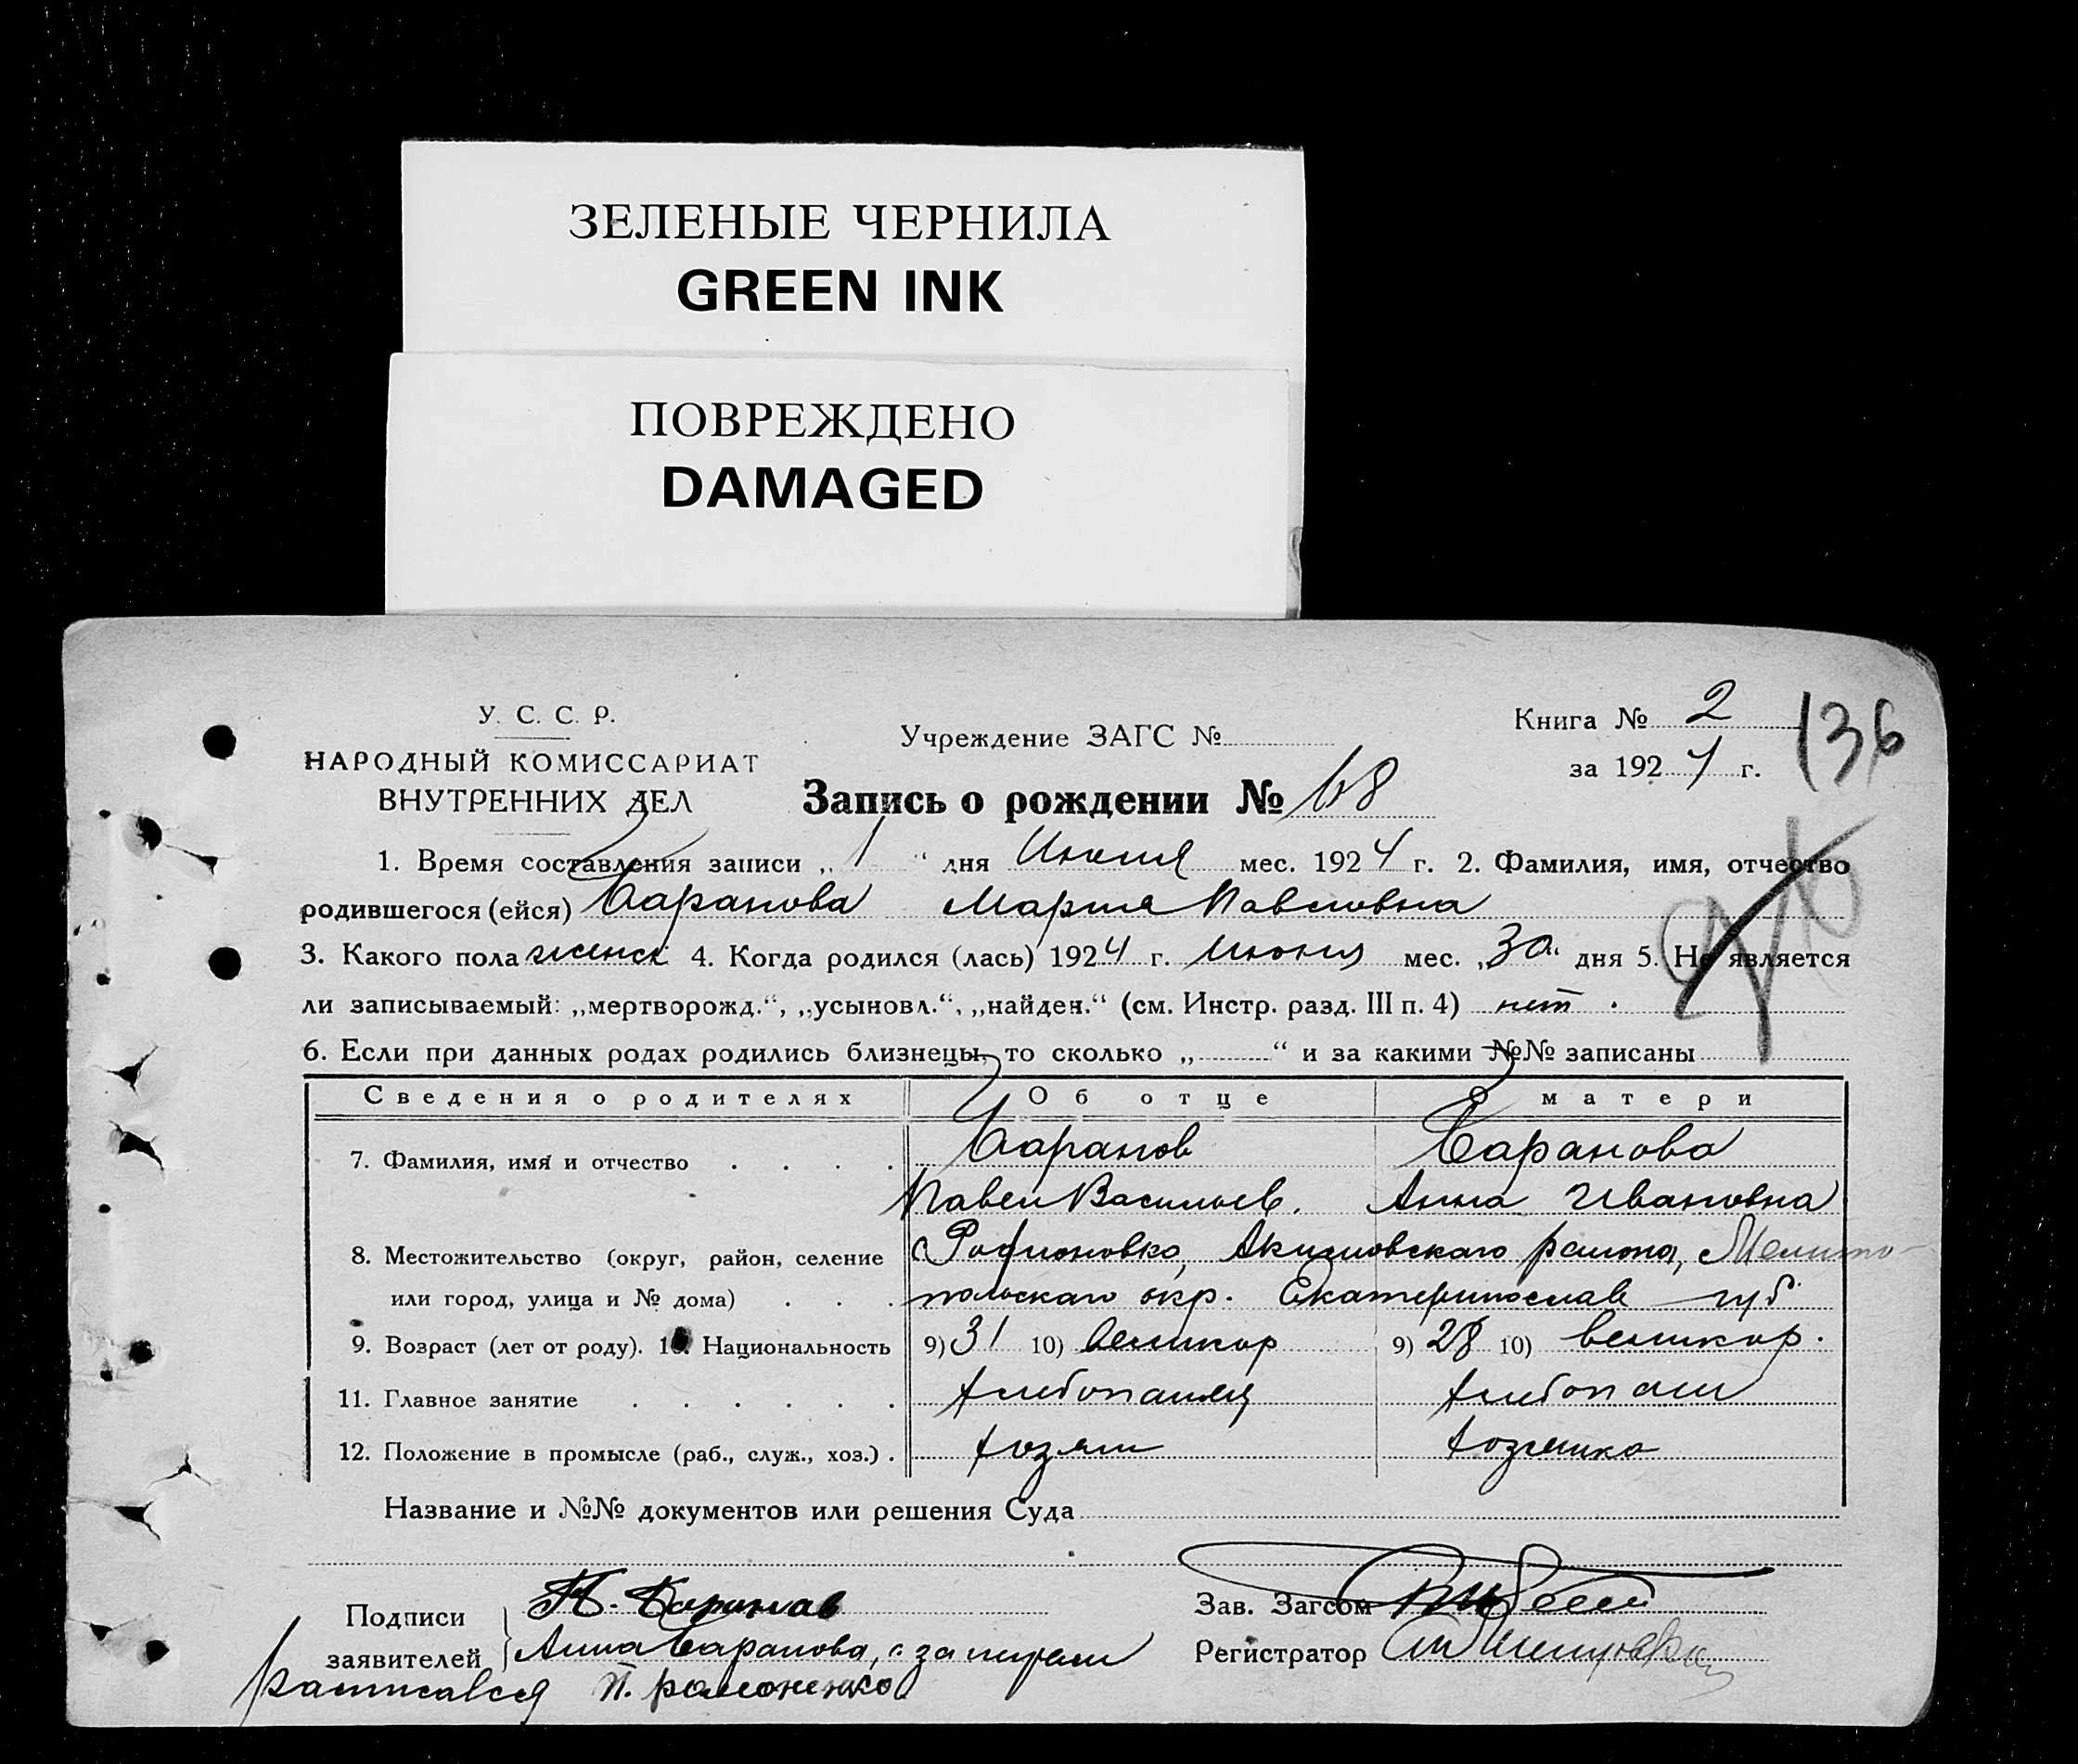 ЗЕЛЕНЫЕ ЧЕРНИЛА
GREEN INK
ПОВРЕЖДЕНО
DAMAGED
У. С. С. Р.
НАРОДНЫЙ КОМИССАРИАТ
ВНУТРЕННИХ ДЕЛ
Учреждение ЗАГС №
Книга № 2
136
за 1924 г.
Запись о рождении № 68
1. Время составления записи „ 1 “ дня Июля мес. 1924 г. 2. Фамилия, имя, отчество
родившегося (ейся) Баранова Мария Павловна
3. Какого пола женск 4. Когда родился (лась) 1924 г. Июня мес. „30“ дня 5. Не является
ли записываемый: „мертворожд.“, „усыновл.“, „найден.“ (см. Инстр. разд. III п. 4) нет .
6. Если при данных родах родились близнецы, то сколько „ “ и за какими №№ записаны
Сведения о родителях Об отце О матери
7. Фамилия, имя и отчество . . . . Баранов Баранова
Павел Васильев. Анна Ивановна
8. Местожительство (округ, район, селение с Родионовка, Акимовскаго района, Мелито-
или город, улица и № дома) . . . польскаго окр. Екатеринослав губ
9. Возраст (лет от роду). 10. Национальность 9) 31 10) великор 9) 28 10) великор.
11. Главное занятие . . . . . . хлебопашец хлебопаш
12. Положение в промысле (раб., служ., хоз.) . хозяин хозяйка
Название и №№ документов или решения Суда
Подписи П. Баранов Зав. Загсом
заявителей Анна Баранова, а за Регистратор
расписался П.